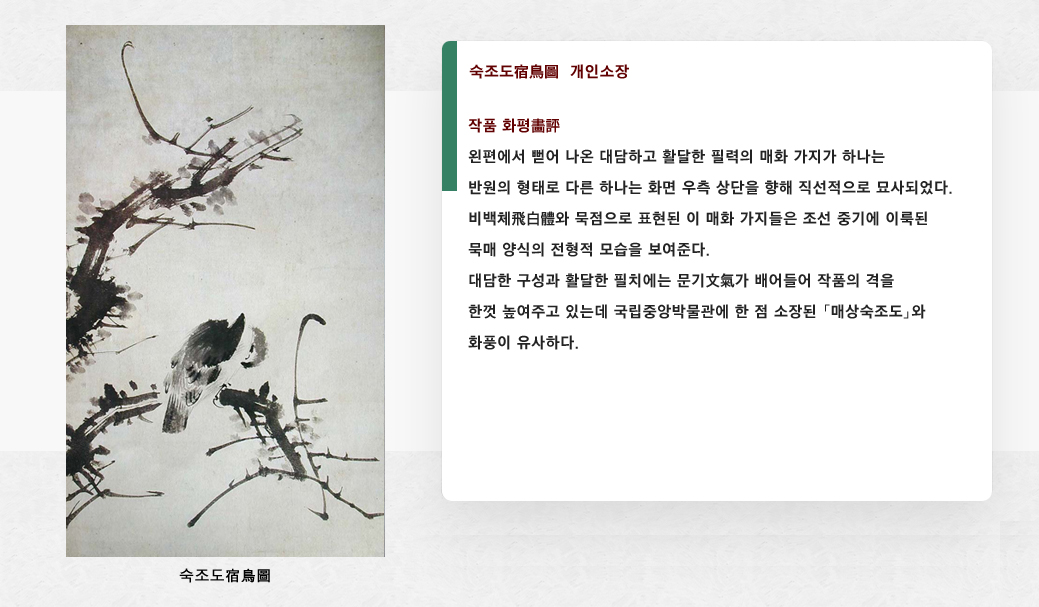 숙조도宿鳥圖 개인소장
작품 화평畵評
왼편에서 뻗어 나온 대담하고 활달한 필력의 매화 가지가 하나는
반원의 형태로 다른 하나는 화면 우측 상단을 향해 직선적으로 묘사되었다.
비백체飛白體와 묵점으로 표현된 이 매화 가지들은 조선 중기에 이룩된
묵매 양식의 전형적 모습을 보여준다.
대담한 구성과 활달한 필치에는 문기文氣가 배어들어 작품의 격을
한껏 높여주고 있는데 국립중앙박물관에 한 점 소장된 「매상숙조도」와
화풍이 유사하다.
숙조도宿鳥圖